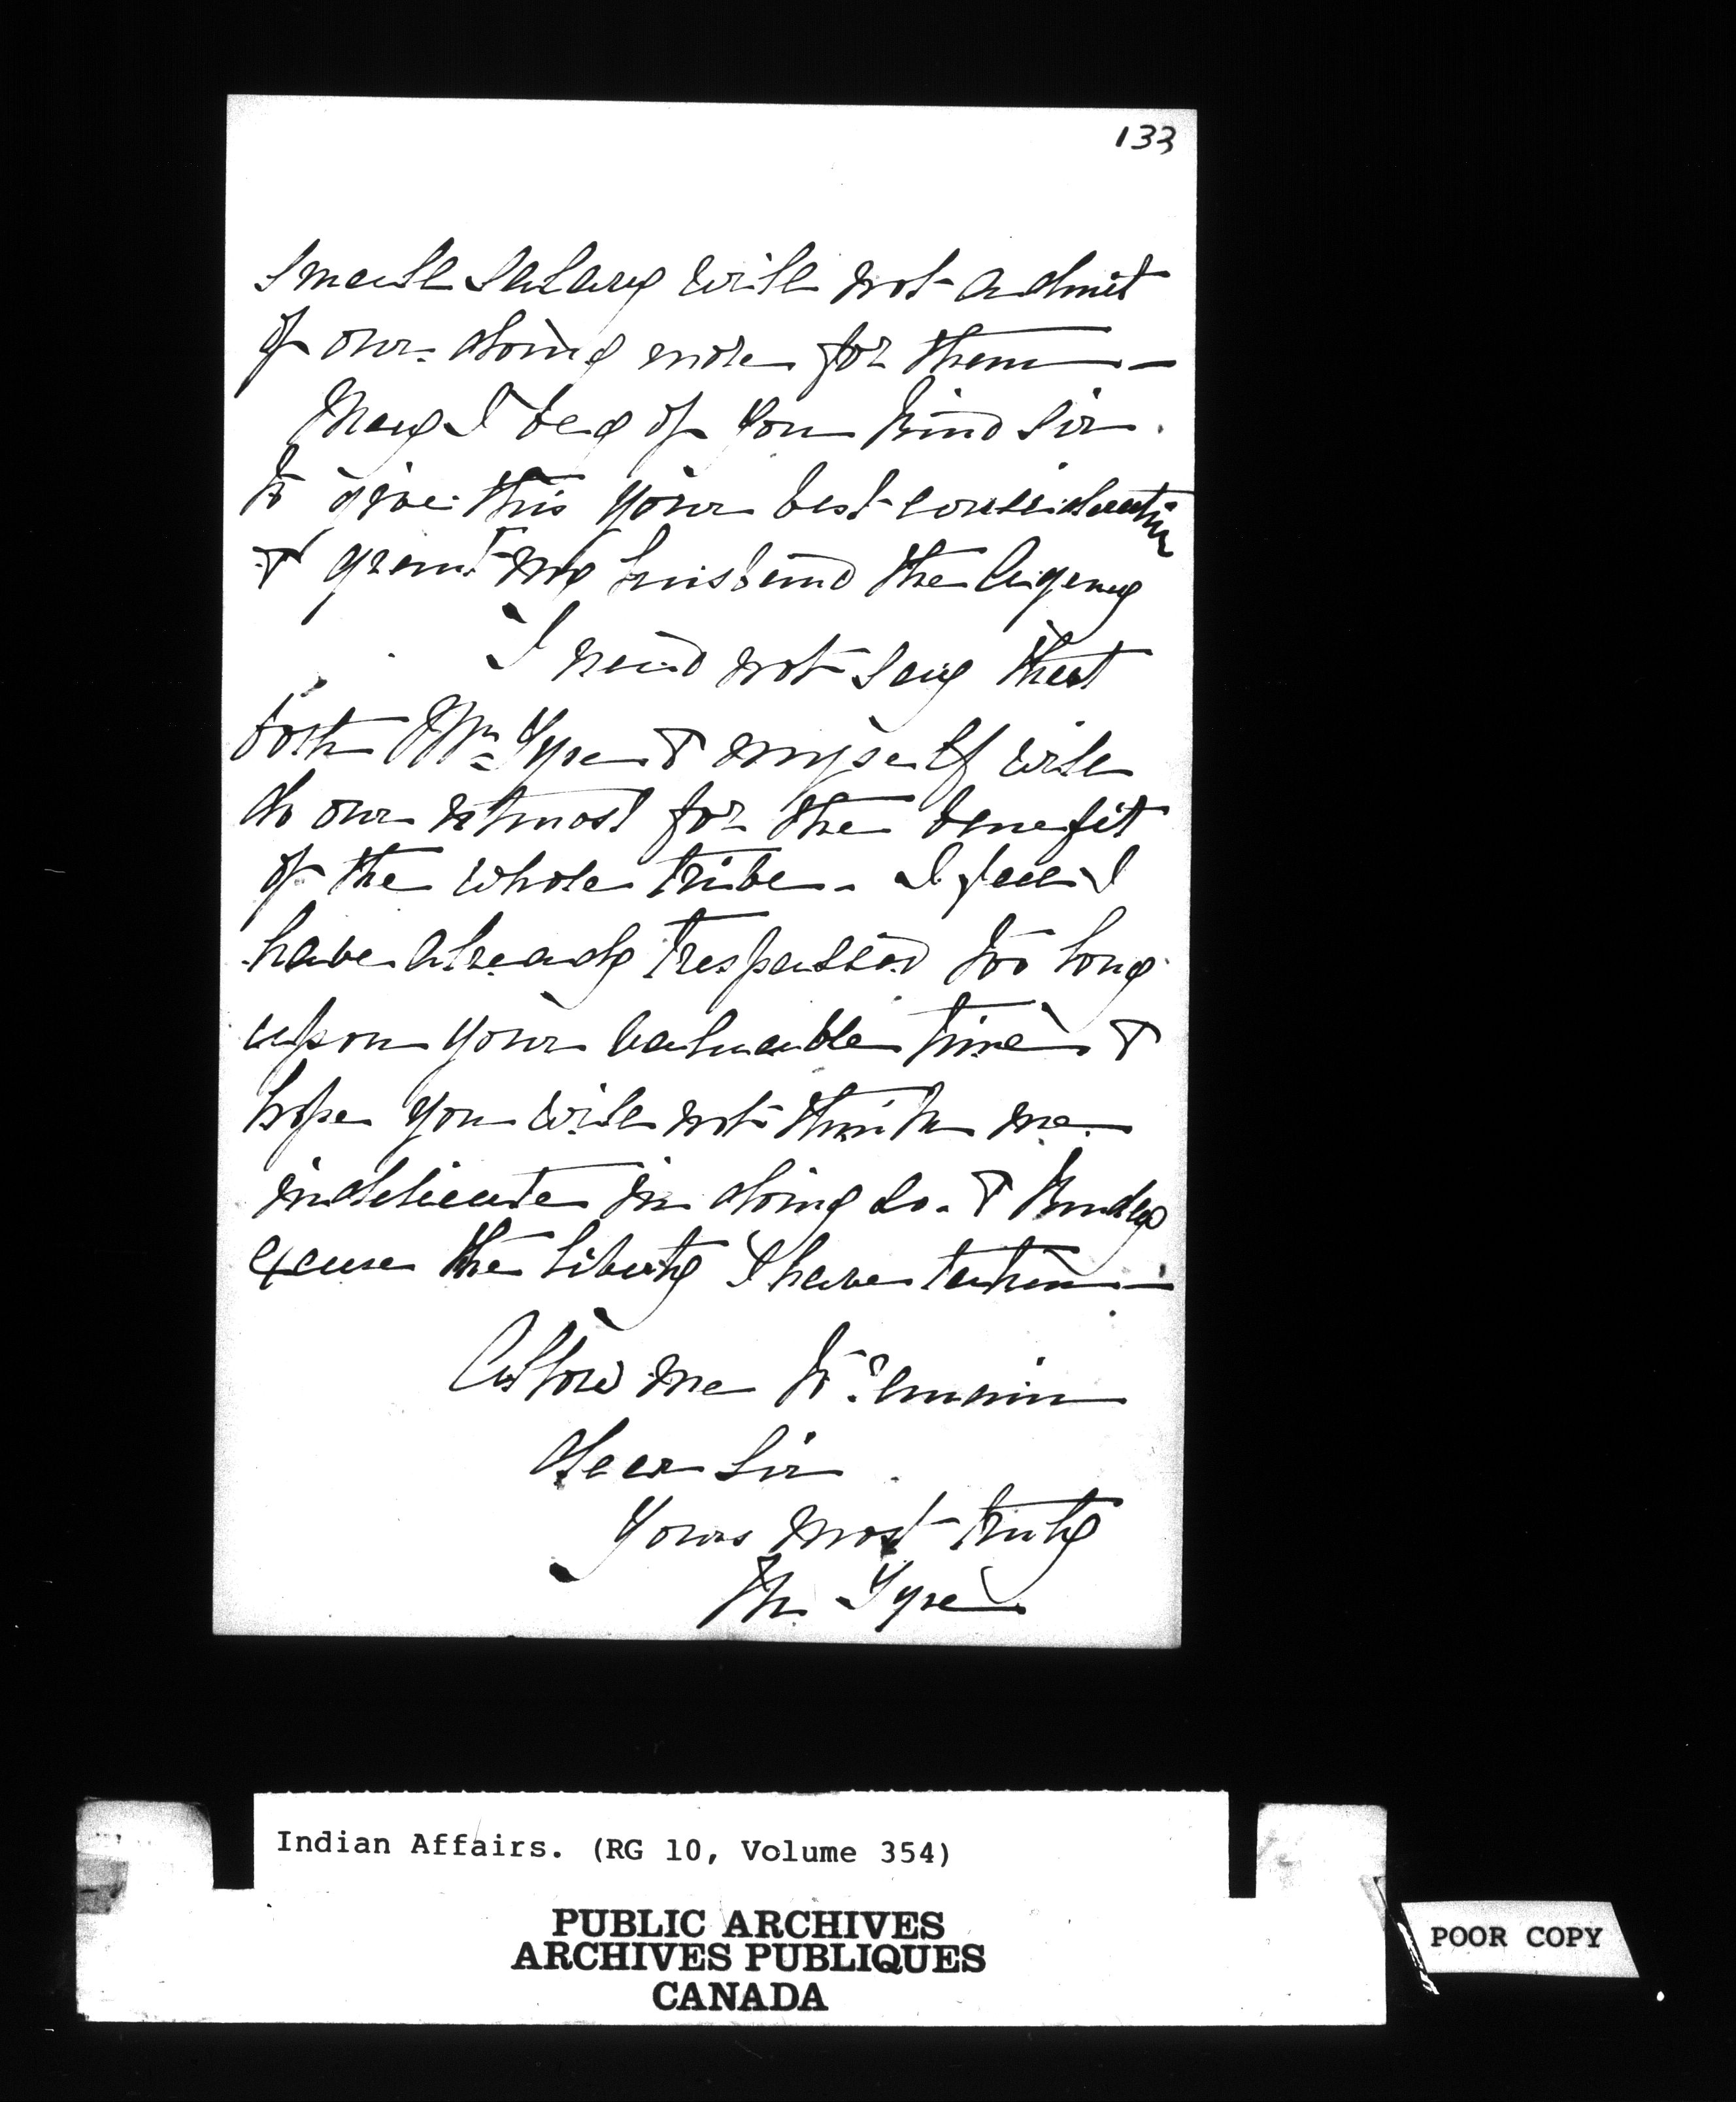 133
small salary will not admit
of our doing more for them —
May I beg of you kind sir
to give this your best consideration
& grant my husband the Agency
I need not say that
both Mr Tyre & myself will
do our utmost for the benefit
of the whole tribe. I feel I
have already trespassed too long
upon your valuable time &
hope you will not think me
indelicate in doing so. & kindly
excuse the liberty I have taken —
Allow me to remain
dear Sir
Yours most truly
M. Tyre
Indian Affairs. (RG 10, Volume 354)
PUBLIC ARCHIVES
ARCHIVES PUBLIQUES
CANADA
POOR COPY